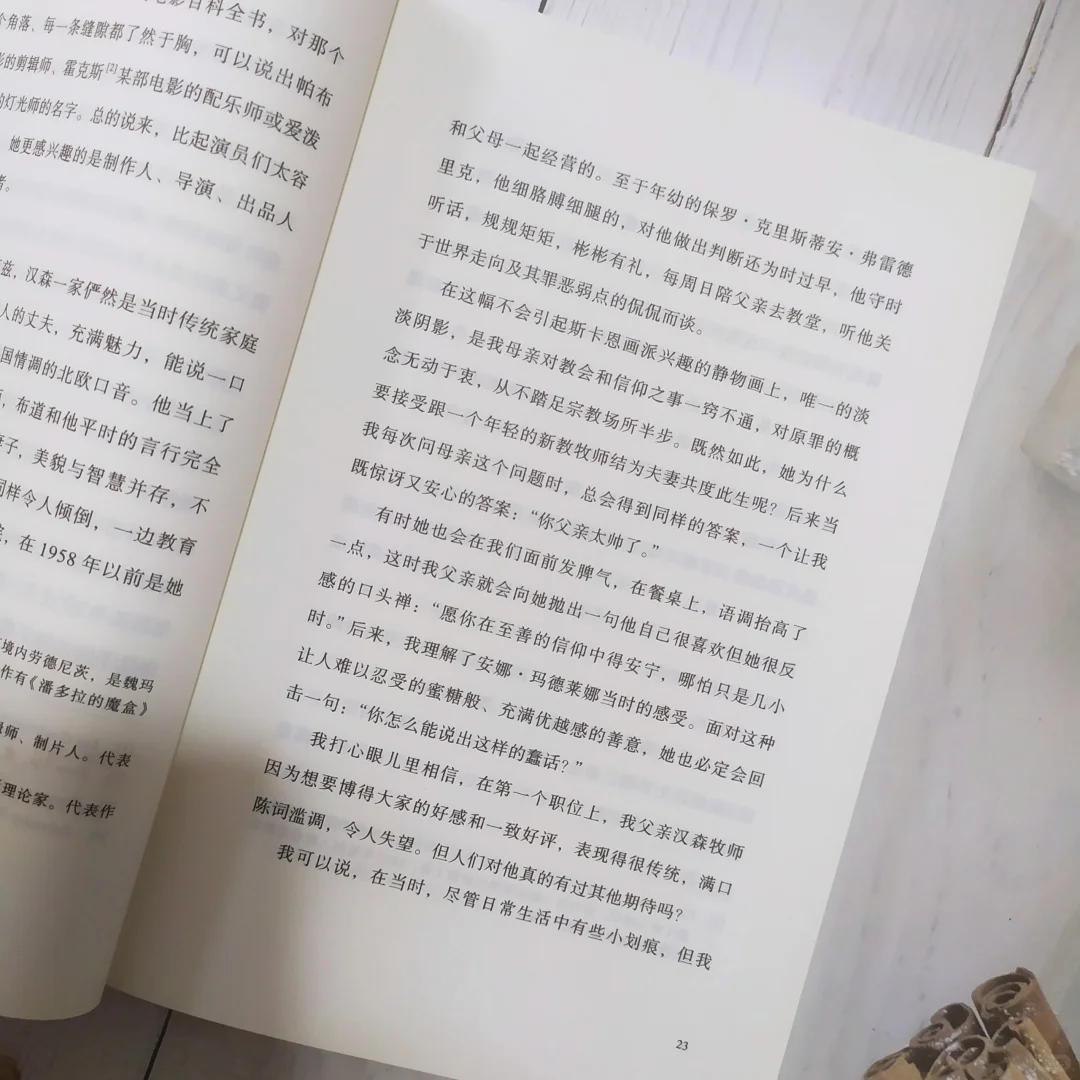 电影百科全书，对那个
个角落、每一条缝隙都了然于胸，可以说出帕布
影的剪辑师、霍克斯[2]某部电影的配乐师或爱泼
的灯光师的名字。总的说来，比起演员们太容
她更感兴趣的是制作人、导演、出品人
者。
兹，汉森一家俨然是当时传统家庭
人的丈夫，充满魅力，能说一口
国情调的北欧口音。他当上了
布道和他平时的言行完全
妻子，美貌与智慧并存，不
同样令人倾倒，一边教育
在1958年以前是她
境内劳德尼茨，是魏玛
作有《潘多拉的魔盒》
辑师、制片人。代表
理论家。代表作
和父母一起经营的。至于年幼的保罗·克里斯蒂安·弗雷德
里克，他细胳膊细腿的，对他做出判断还为时过早，他守时
听话，规规矩矩，彬彬有礼，每周日陪父亲去教堂，听他关
于世界走向及其罪恶弱点的侃侃而谈。
在这幅不会引起斯卡恩画派兴趣的静物画上，唯一的淡
淡阴影，是我母亲对教会和信仰之事一窍不通，对原罪的概
念无动于衷，从不踏足宗教场所半步。既然如此，她为什么
要接受跟一个年轻的新教牧师结为夫妻共度此生呢？后来当
我每次问母亲这个问题时，总会得到同样的答案，一个让我
既惊讶又安心的答案：“你父亲太帅了。”
有时她也会在我们面前发脾气，在餐桌上，语调抬高了
一点，这时我父亲就会向她抛出一句他自己很喜欢但她很反
感的口头禅：“愿你在至善的信仰中得安宁，哪怕只是几小
时。”后来，我理解了安娜·玛德莱娜当时的感受。面对这种
让人难以忍受的蜜糖般、充满优越感的善意，她也必定会回
击一句：“你怎么能说出这样的蠢话？”
我打心眼儿里相信，在第一个职位上，我父亲汉森牧师
因为想要博得大家的好感和一致好评，表现得很传统，满口
陈词滥调，令人失望。但人们对他真的有过其他期待吗？
我可以说，在当时，尽管日常生活中有些小划痕，但我
23